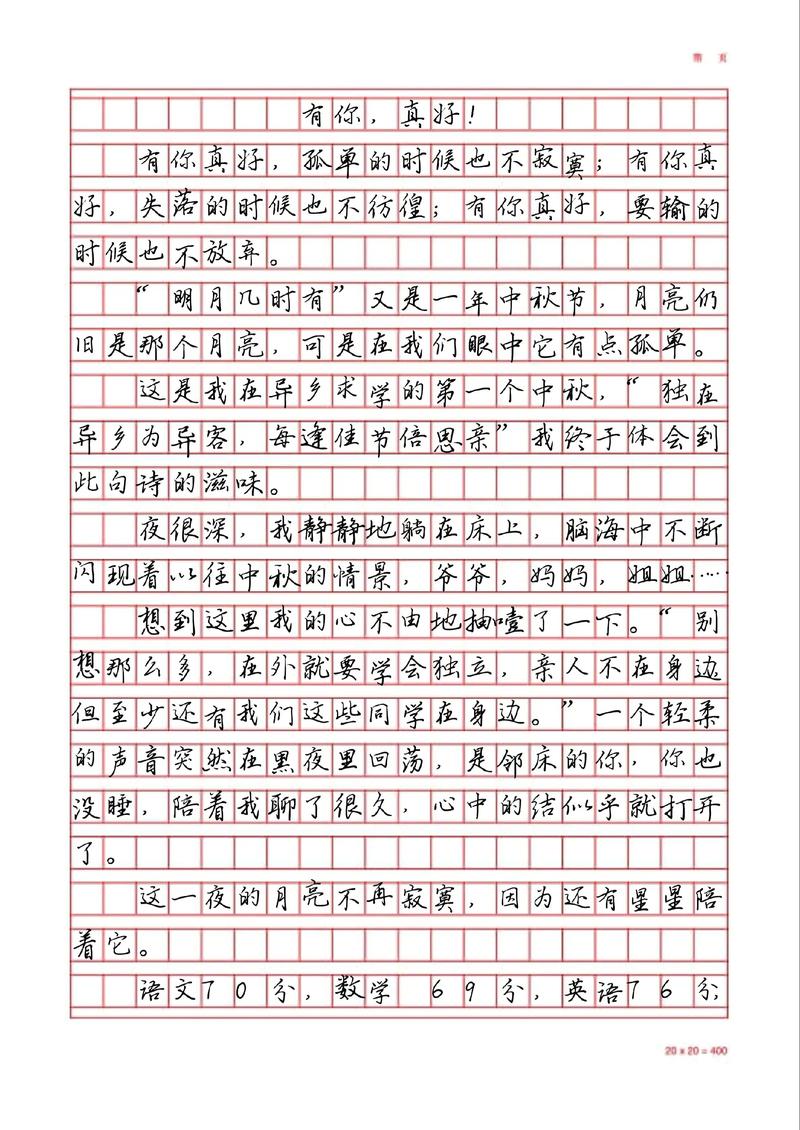 第 页
有你，真好！
有你真好，孤单的时候也不寂寞；有你真
好，失落的时候也不彷徨；有你真好，要输的
时候也不放弃。
“明月几时有”又是一年中秋节，月亮仍
旧是那个月亮，可是在我们眼中它有点孤单。
这是我在异乡求学的第一个中秋，“独在
异乡为异客，每逢佳节倍思亲”我终于体会到
此句诗的滋味。
夜很深，我静静地躺在床上，脑海中不断
闪现着以往中秋的情景，爷爷，妈妈，姐姐……
想到这里我的心不由地抽噎了一下。“别
想那么多，在外就要学会独立，亲人不在身边
但至少还有我们这些同学在身边。”一个轻柔
的声音突然在黑夜里回荡，是邻床的你，你也
没睡，陪着我聊了很久，心中的结似乎就打开
了。
这一夜的月亮不再寂寞，因为还有星星陪
着它。
语文70分，数学 69分，英语76分；
20 x 20 = 400